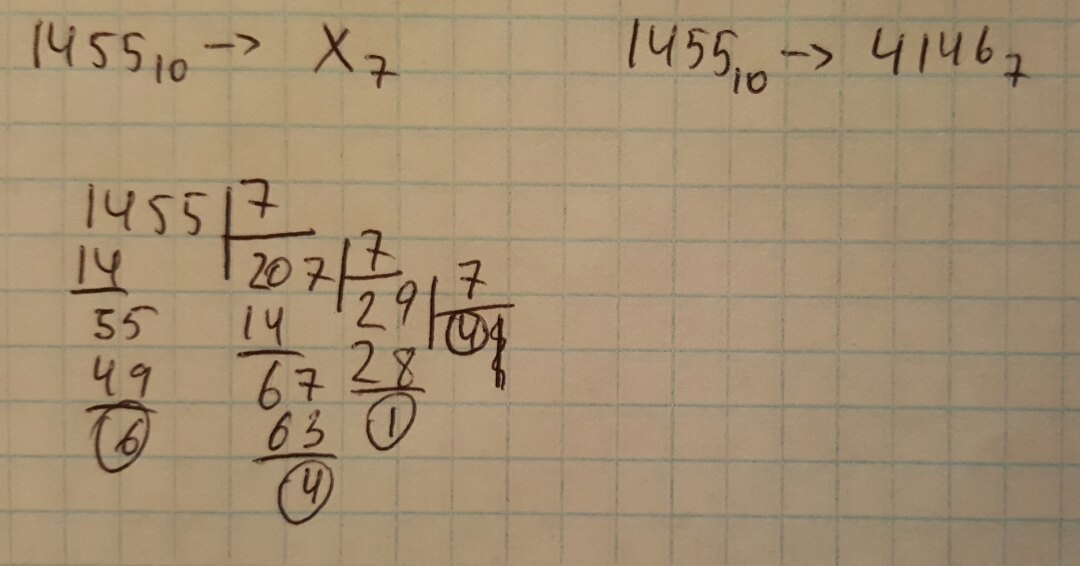 1455₁₀ -> X₇ 1455₁₀ -> 4146₇
1455 7
14 207 7
55 14 29 7
49 67 28 4
6 63 1
4